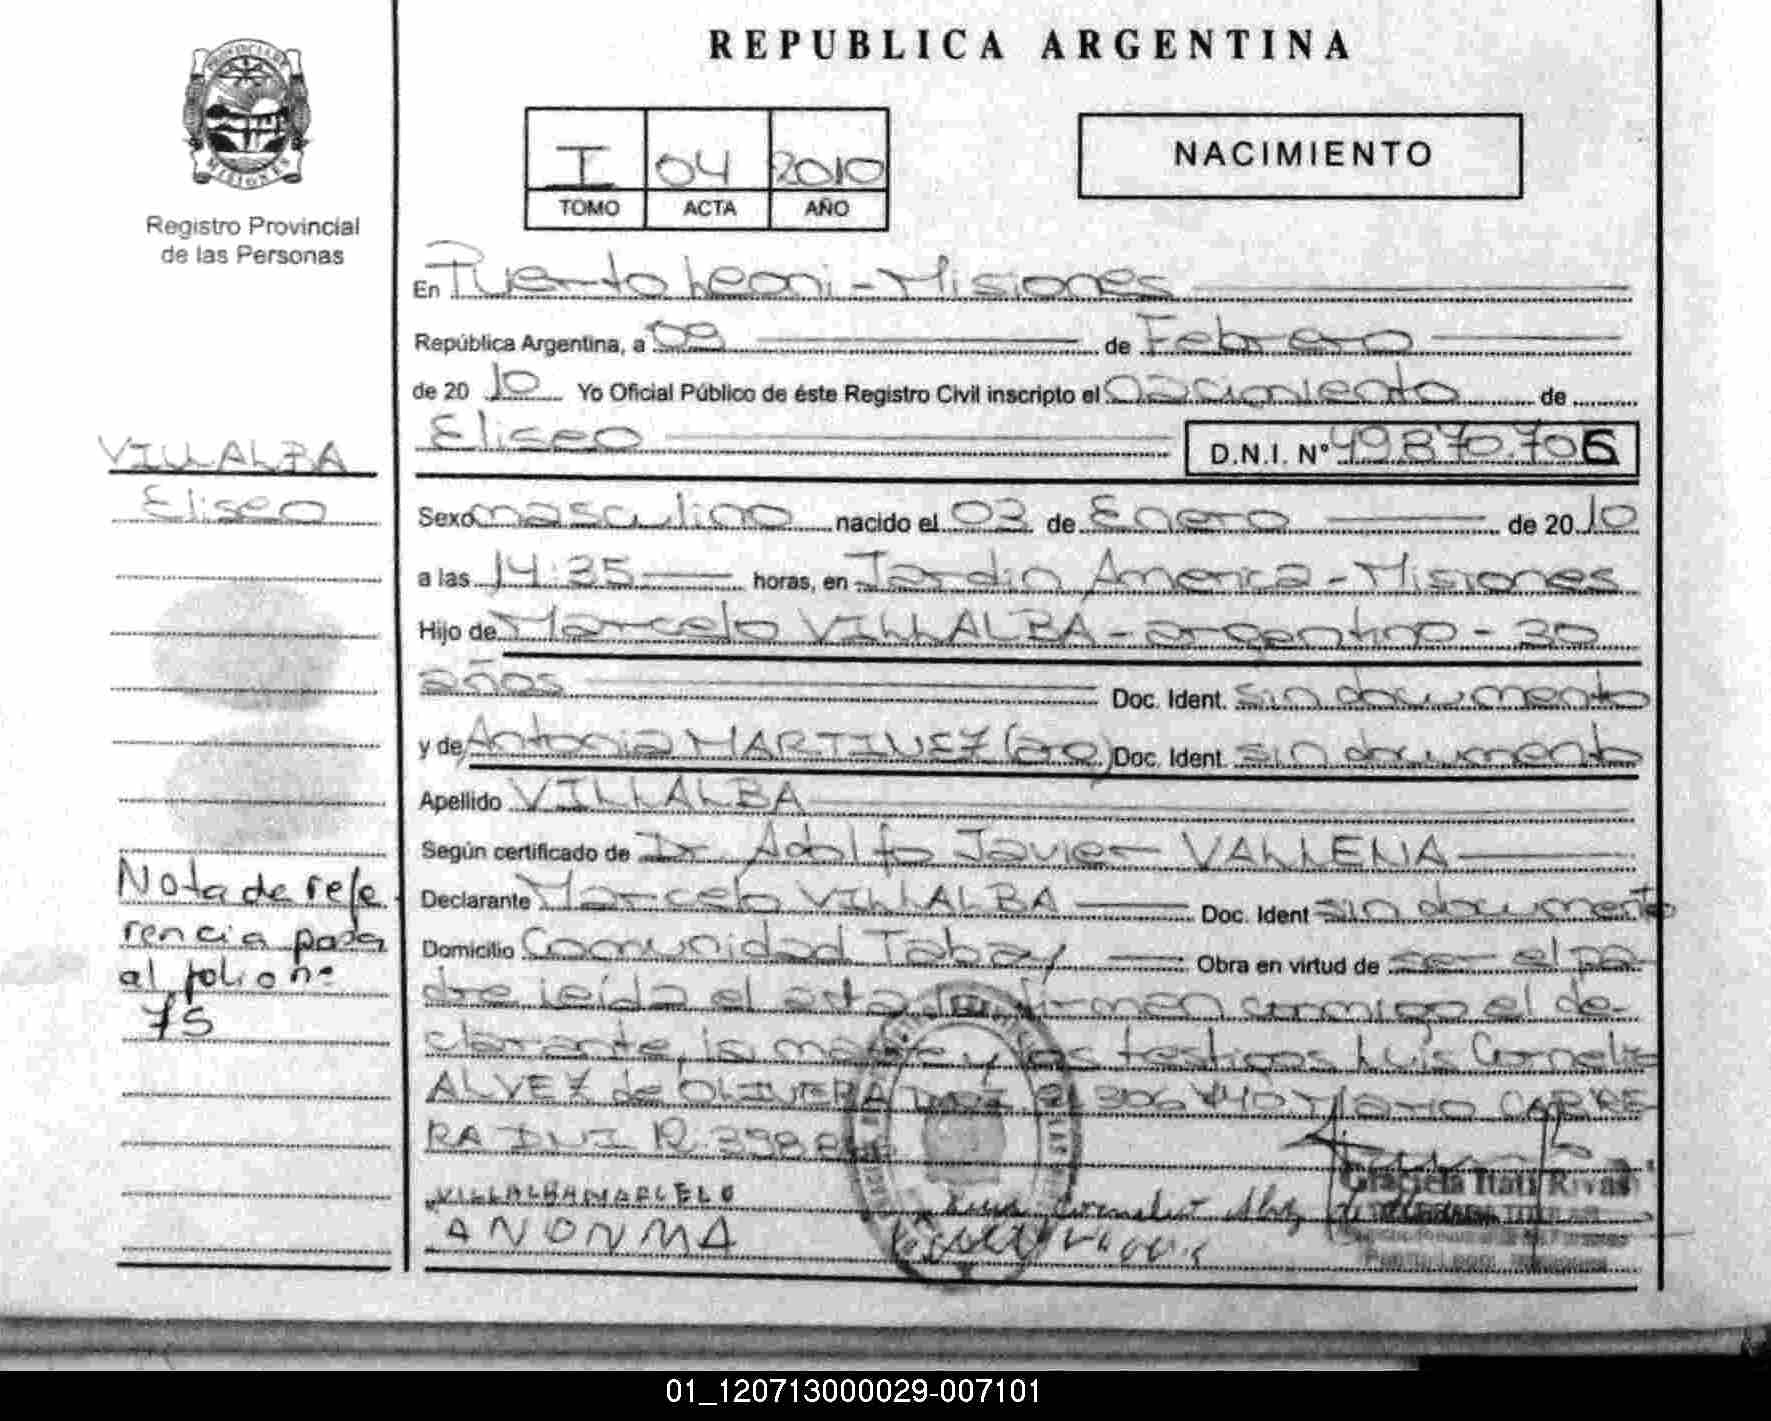 REPUBLICA ARGENTINA
PROVINCIA DE
MISIONES
Registro Provincial
de las Personas
I 04 2010
TOMO ACTA AÑO
NACIMIENTO
En Puerto Leoni - Misiones
República Argentina, a 09 de Febrero
de 20 10 Yo Oficial Público de éste Registro Civil inscripto el nacimiento de
Eliseo D.N.I. N° 49.870.706
VILLALBA
Eliseo
Sexo masculino nacido el 03 de Enero de 20 10
a las 14:35 horas, en Jardin America - Misiones
Hijo de Marcelo VILLALBA - argentino - 30
años Doc. Ident. sin documento
y de Antonia MARTINEZ Doc. Ident. sin documento
Apellido VILLALBA
Según certificado de Dr. Adolfo Javier
Declarante Marcelo VILLALBA Doc. Ident sin documento
Domicilio Comunidad Tabay Obra en virtud de ser el pa-
dre leída el acta la firman conmigo el de-
clarante, la madre y los testigos Luis Cornelio
ALVEZ de OLIVERA DNI 306 440 Mario CABRE
RA DNI 12.398
Nota de refe
rencia pasa
al folio n°
75
VILLALBA MARCELO
ANONMA
Graciela Itati Rivas